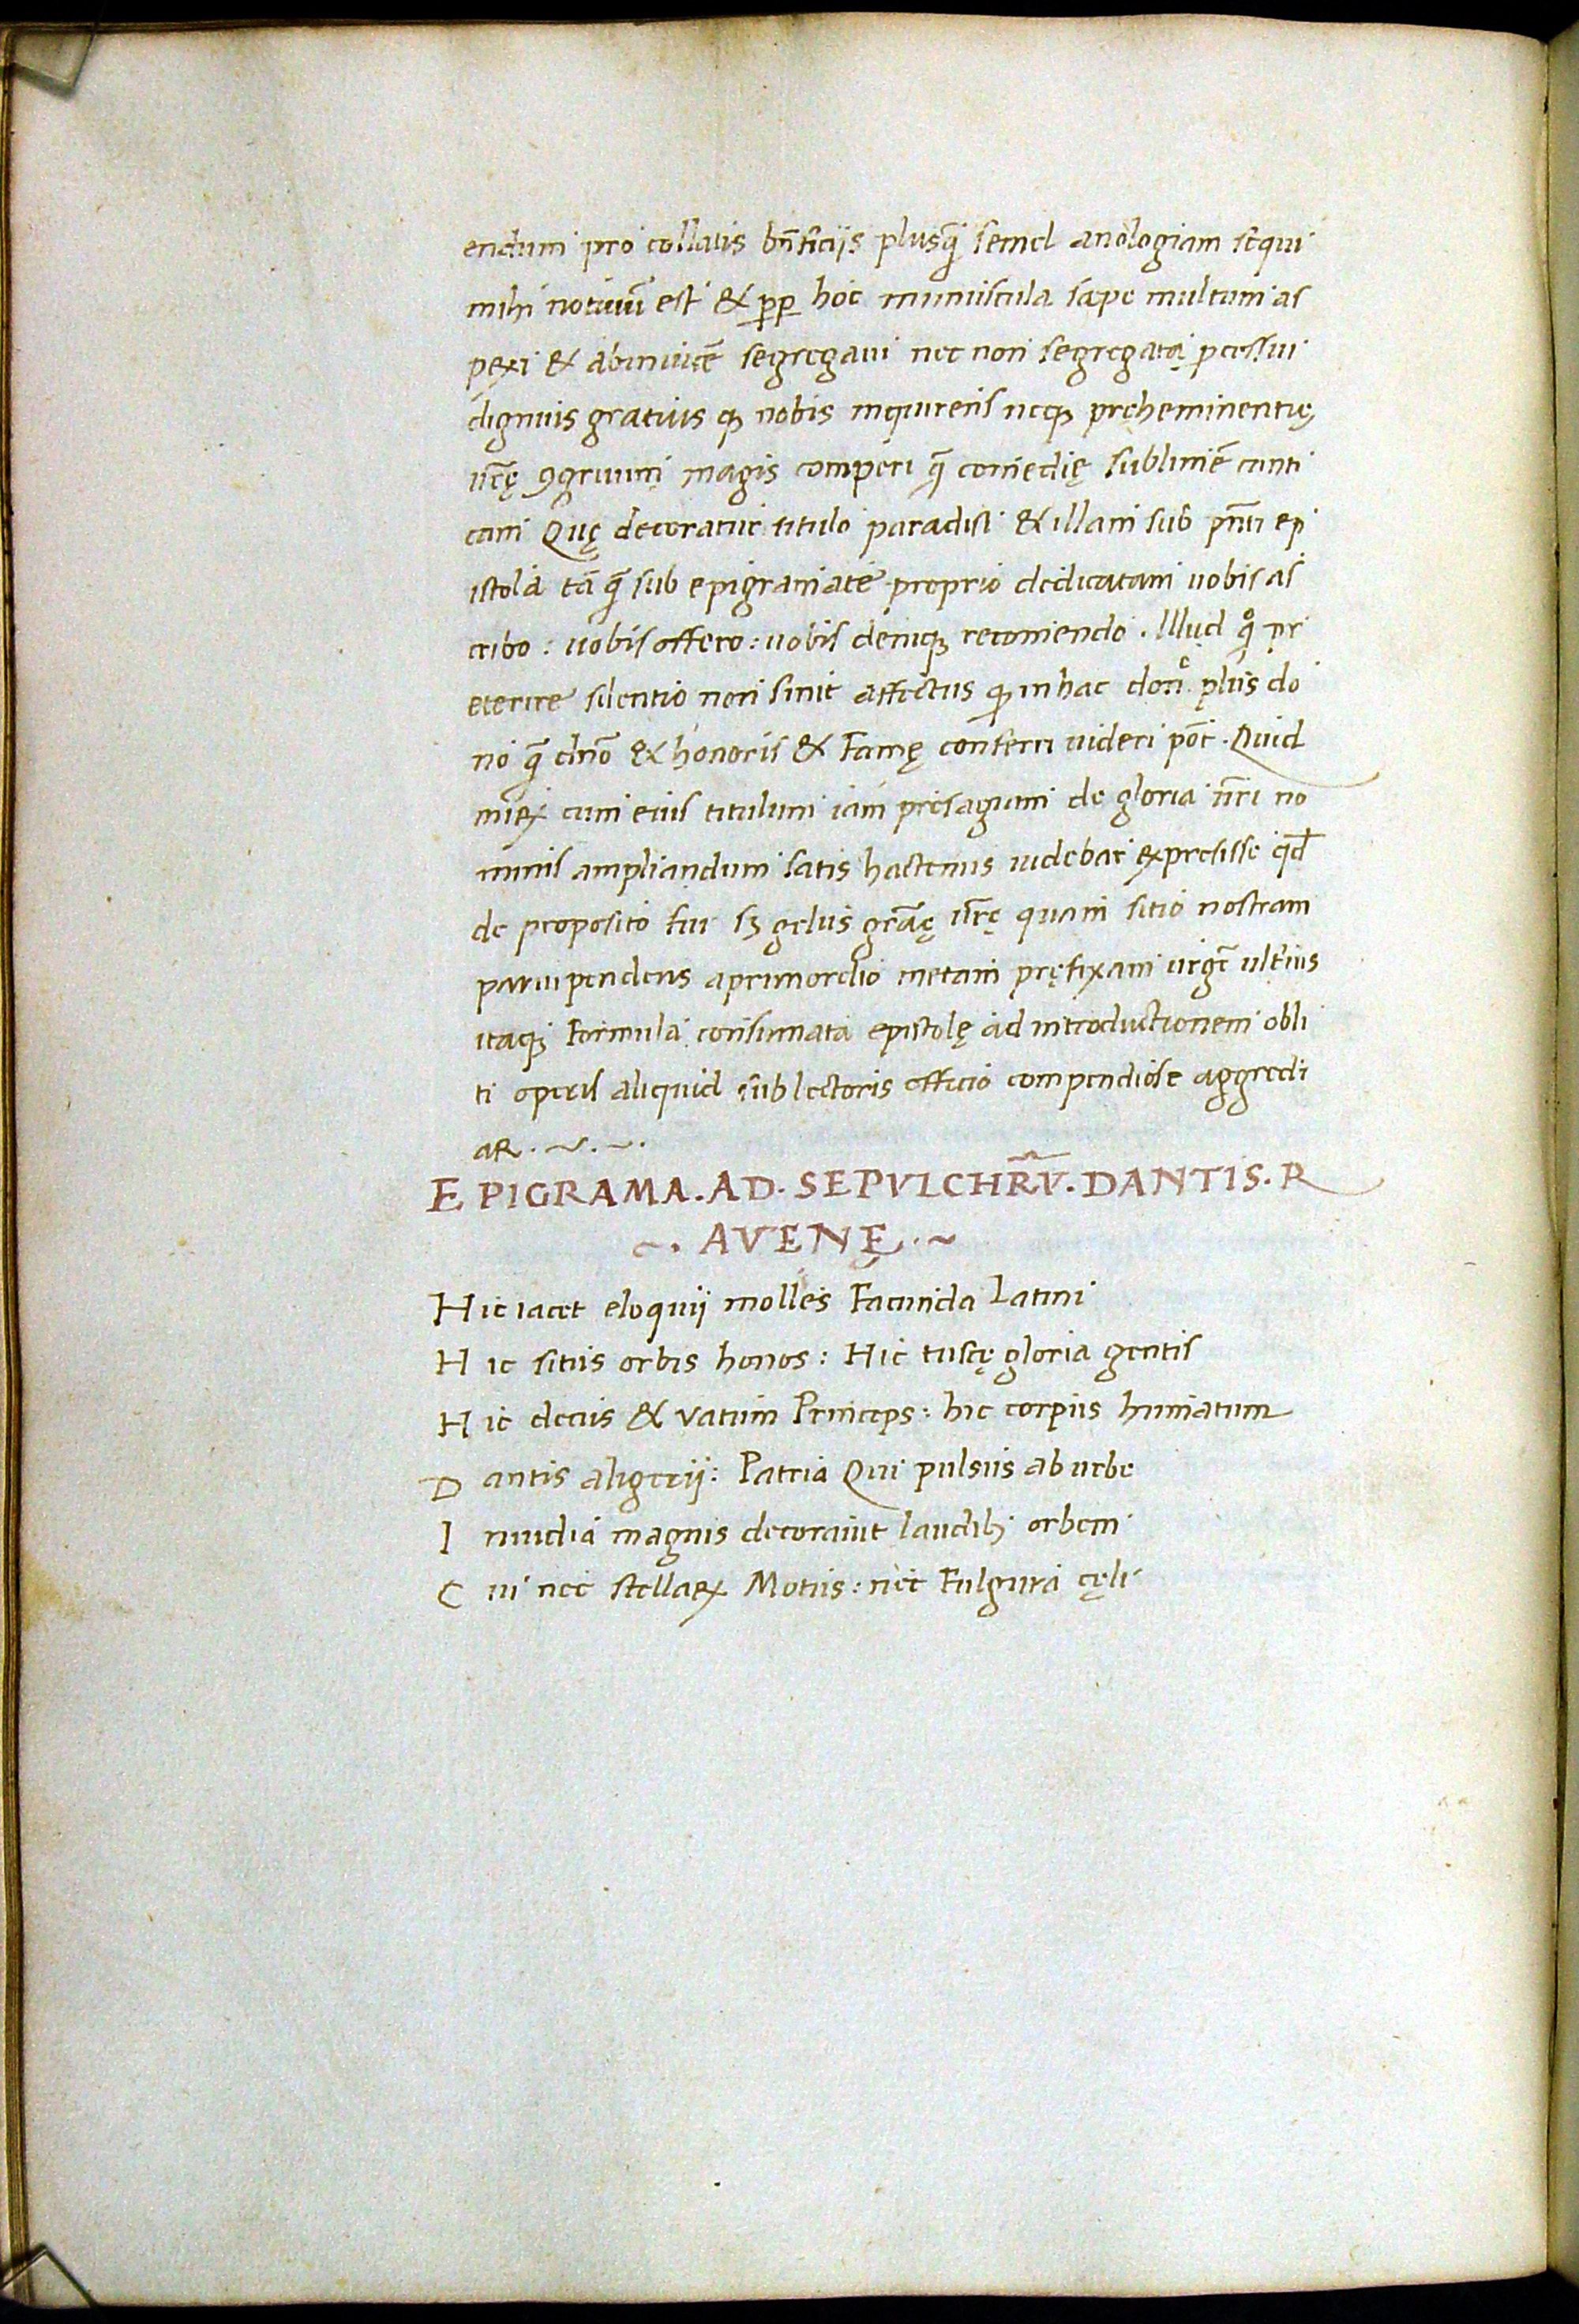 endum pro collatis bn̄ficijs plusq̄ semel anologiam sequi
mihi notiuū est & ꝓp hoc muniuscula sæpe multum as
pexi & abinuicē segregaui nec non segregata percussui
digniusgratius qꝫ nobis inquirens neqꝫ pręheminentię
ur̄ę ꝯgruum magis comperi q̄ comedię sublimē canti
cam Quę decoratur titulo paradisi & illam sub pn̄ti ep
istola tā q̄ sub epigramate proprio dedicatam uobis as
cribo : uobis offero : uobis deniqꝫ recomendo . Illud qͦ pr
eterire silentio non sinit affectus qꝫ in hac donͨ plus do
no q̄ dn̄o & honoris & Famę conferri uideri pōt . Quid
miꝝ cum eius titulum iam presagium de gloria ur̄i no
minis ampliandum satis hactenus uidebar expresisse qd̄
de proposito fui sꝫ zelus gr̄aę ur̄ę quam sitio nostram
paruipendens aprimordio metam pręfixam urgēt ultius
itaqꝫ Formula consumata epistolę ad introductionem obli
ti operis aliquid sub lectoris officio compendiose aggredi
aR . ~ . ~ .
EPIGRAMA . AD . SEPVLCHR̄V . DANTIS . R
~ . AVENĘ . ~
Hic iacet eloquij molles Facunda Latini
Hic situs orbis honos : Hic tuscę gloria gentis
Hic decus & vatum Princeps : hic corpus humatum
Dantis aligerij : Patria Qui pulsus ab urbe
Inuidia magnis decorauit laudibꝫ orbem
Cui nec stellaꝝ Motus : nec Fulgura cęli